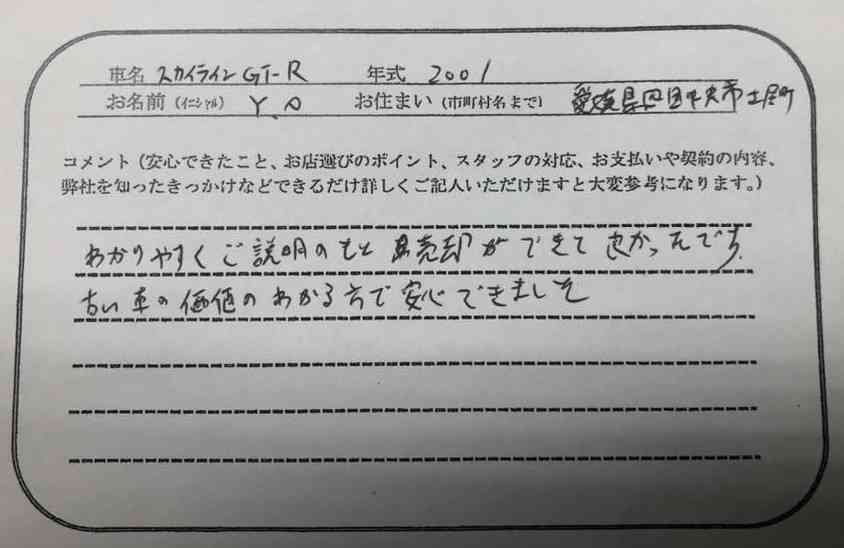 車名 スカイラインGT-R 年式 2001
お名前(イニシャル) Y.O お住まい(市町村名まで) 愛媛県四国中央市土居町
コメント(安心できたこと、お店選びのポイント、スタッフの対応、お支払いや契約の内容、
弊社を知ったきっかけなどできるだけ詳しくご記入いただけますと大変参考になります。)
わかりやすくご説明のもと 売却ができて良かったです。
古い車の価値のわかる方で安心できました